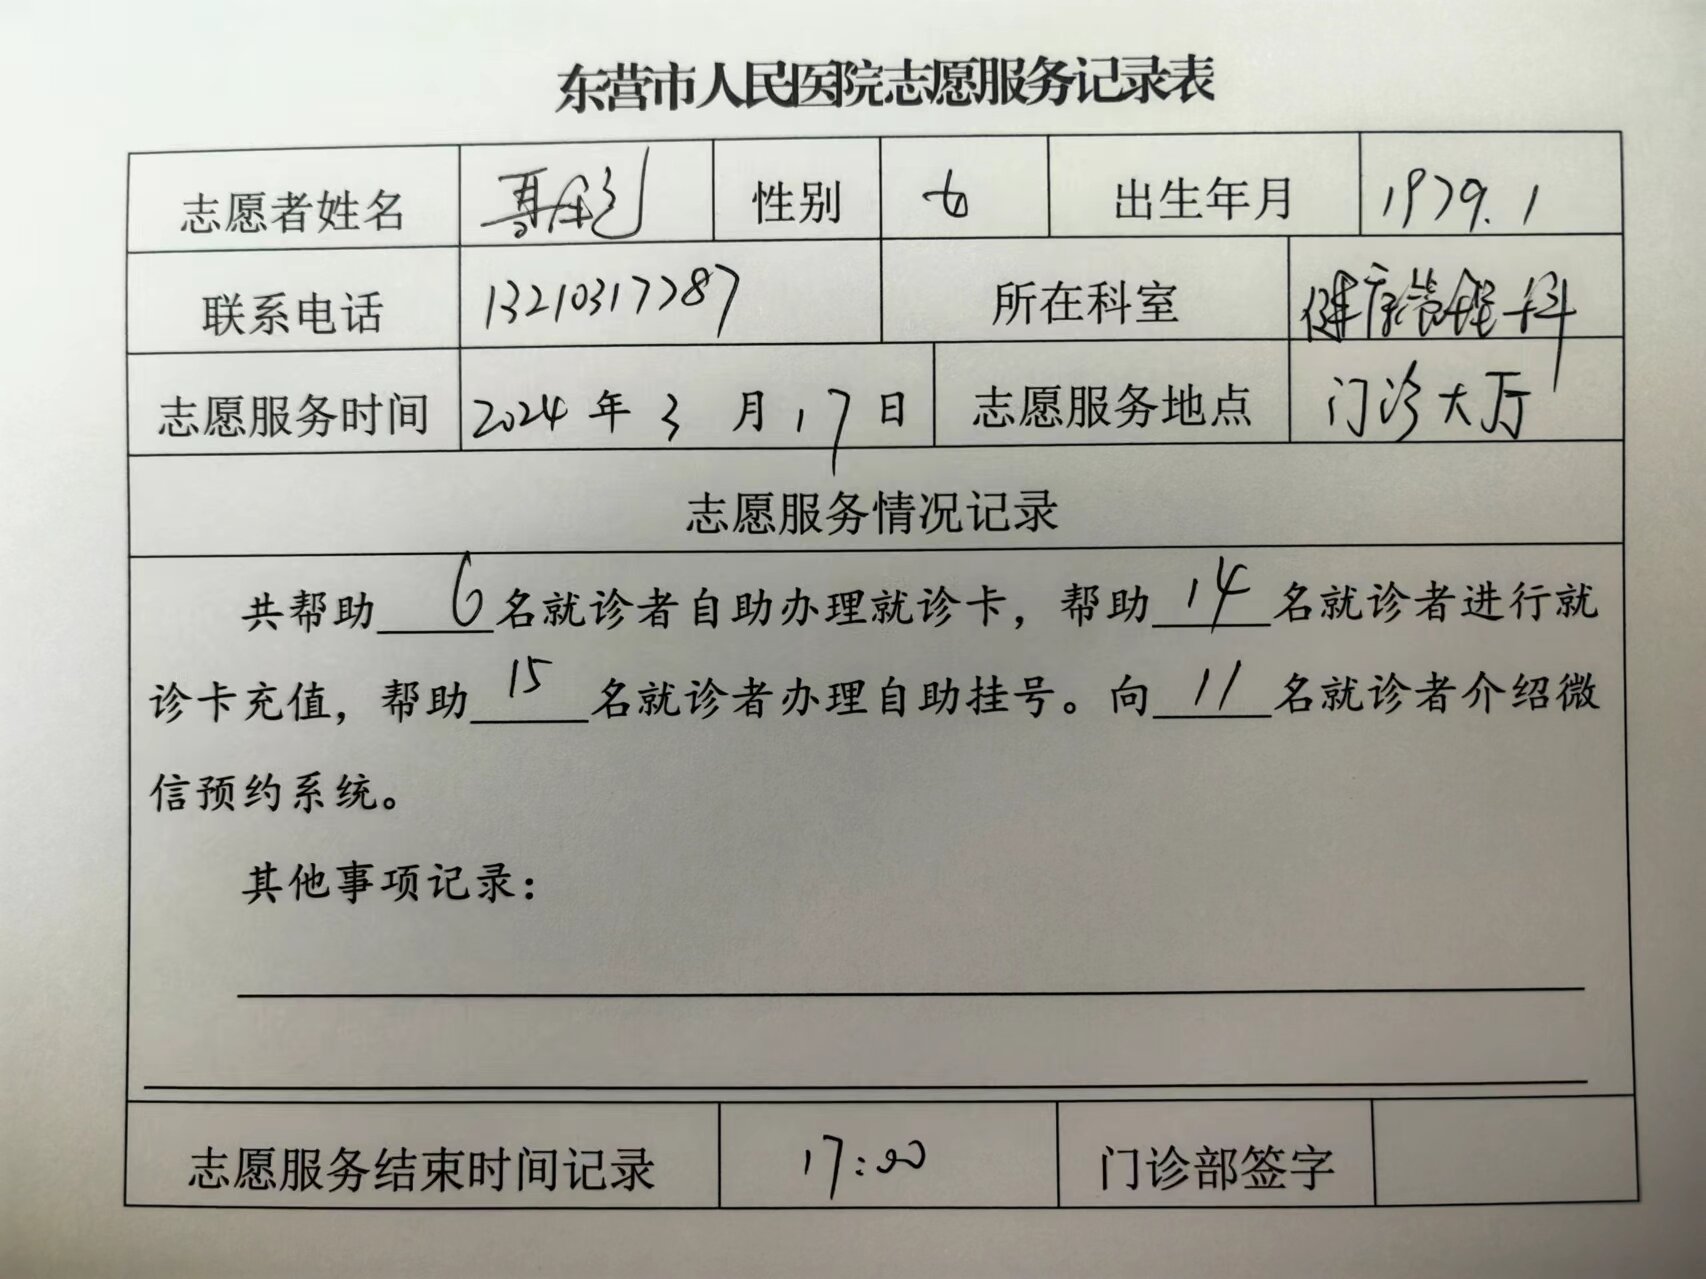 东营市人民医院志愿服务记录表
志愿者姓名 性别 女 出生年月 1979.1
联系电话 13210317787 所在科室 健康管理科
志愿服务时间 2024年3月17日 志愿服务地点 门诊大厅
志愿服务情况记录
共帮助6名就诊者自助办理就诊卡，帮助14名就诊者进行就
诊卡充值，帮助15名就诊者办理自助挂号。向11名就诊者介绍微
信预约系统。
其他事项记录：
志愿服务结束时间记录 17:00 门诊部签字